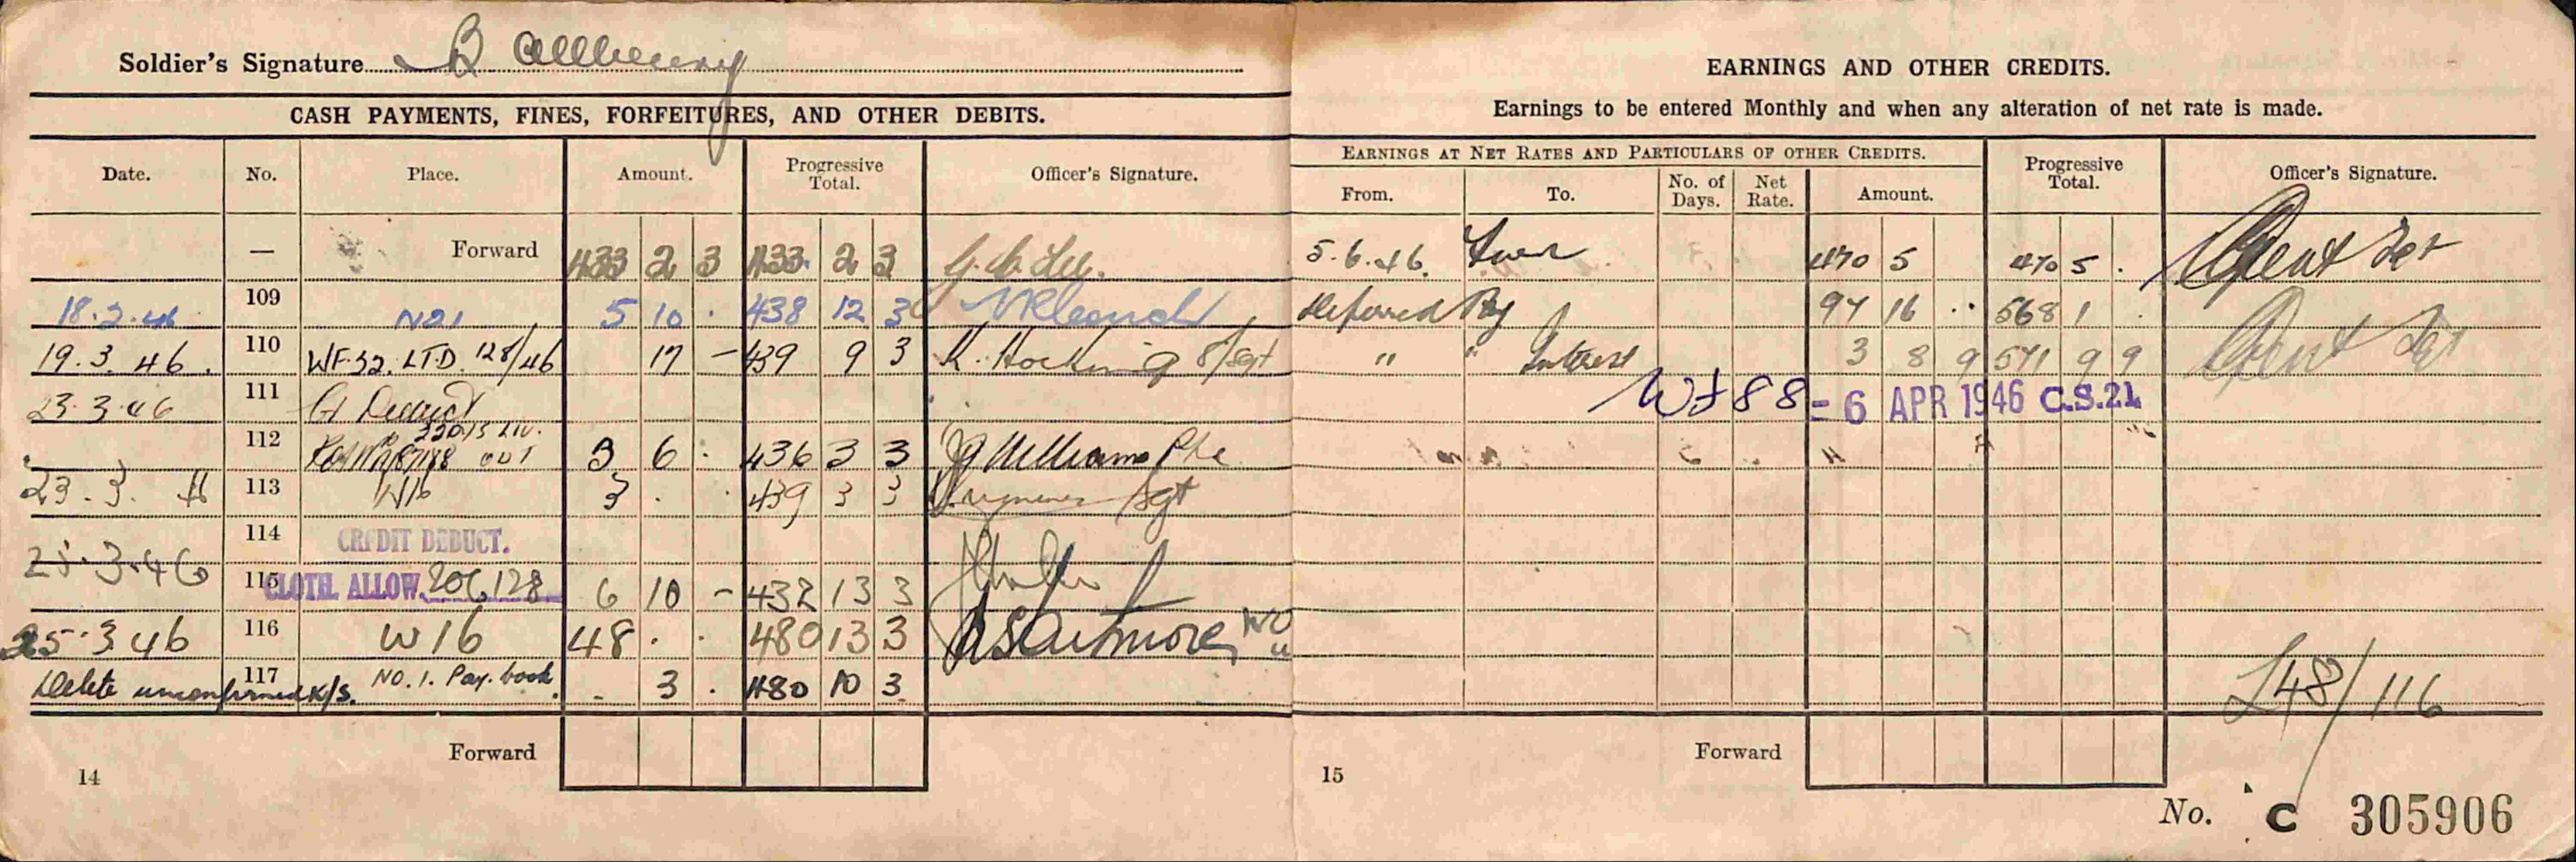 Soldier's Signature B Allbeury
CASH PAYMENTS, FINES, FORFEITURES, AND OTHER DEBITS.
Date. No. Place. Amount. Progressive Total. Officer's Signature.
— Forward 433 2 3 433 2 3
18.2.46 109 5 10 . 438 12 3
19.3.46. 110 WF.52. LTD. 128/46 17 – 439 9 3 K. Hocking S/Sgt
23.3.46 111
112 3 6 . 436 3 3 Williams
23.3. 113 W16 3 . . 439 3 3 Sgt
25.3.46 114 CREDIT DEDUCT.
115 CLOTH. ALLOW. 206,128 6 10 – 432 13 3
25.3.46 116 W16 48 . . 480 13 3
Delete unconfirmed 117 No. 1. Pay. book – 3 . 480 10 3
Forward
14
EARNINGS AND OTHER CREDITS.
Earnings to be entered Monthly and when any alteration of net rate is made.
EARNINGS AT NET RATES AND PARTICULARS OF OTHER CREDITS.
From. To. No. of Days. Net Rate. Amount. Progressive Total. Officer's Signature.
5.6.46. 470 5 470 5 .
Deferred Pay 97 16 . 568 1 .
" " Interest 3 8 9 571 9 9
– 6 APR 1946 C.S.21
£48/116
Forward
15
No. C 305906